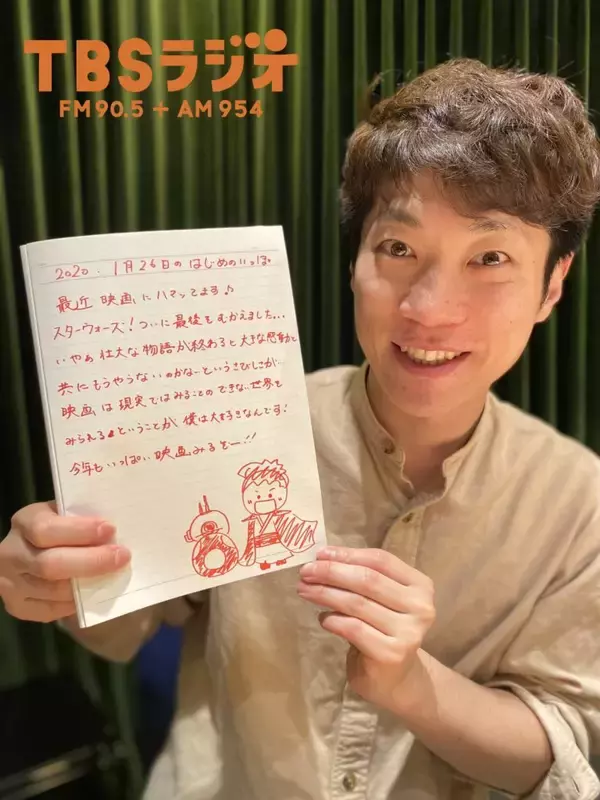 TBSラジオ
FM90.5+AM954
2020.1月26日のはじめのいっぽ
最近映画にハマッてます♪
スターウォーズ!ついに最後をむかえました...
いやぁ壮大な物語が終わると大きな感動と
共にもうやらないのかなーというさびしさが...
映画は現実ではみることのできない世界を
みられるということが僕は大好きなんです!
今年もいっぱい映画みるぞー!!